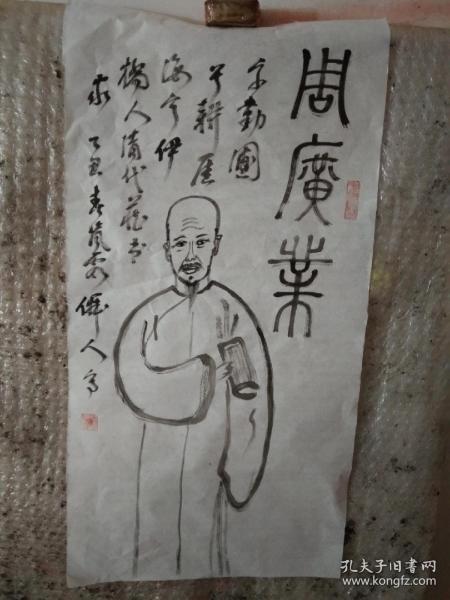 周廣業
字勤圃
号耕厓
海宁伊
橋人清代藏书
家 丑春
人写
孔夫子旧书网
www.kongfz.com